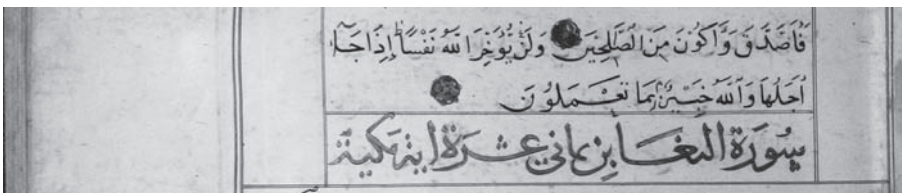 فَأَصَّدَّقَ وَأَكُونَ مِنَ الصَّلِحِينَ وَلَنْ يُؤَخِّرَ اللَّهُ نَفْسًا إِذَا جَآءَ
أَجَلُهَا وَاللَّهُ خَبِيرٌ بِمَا تَعْمَلُونَ
سُورَةُ التغَابن ثماني عشرة اية مكية